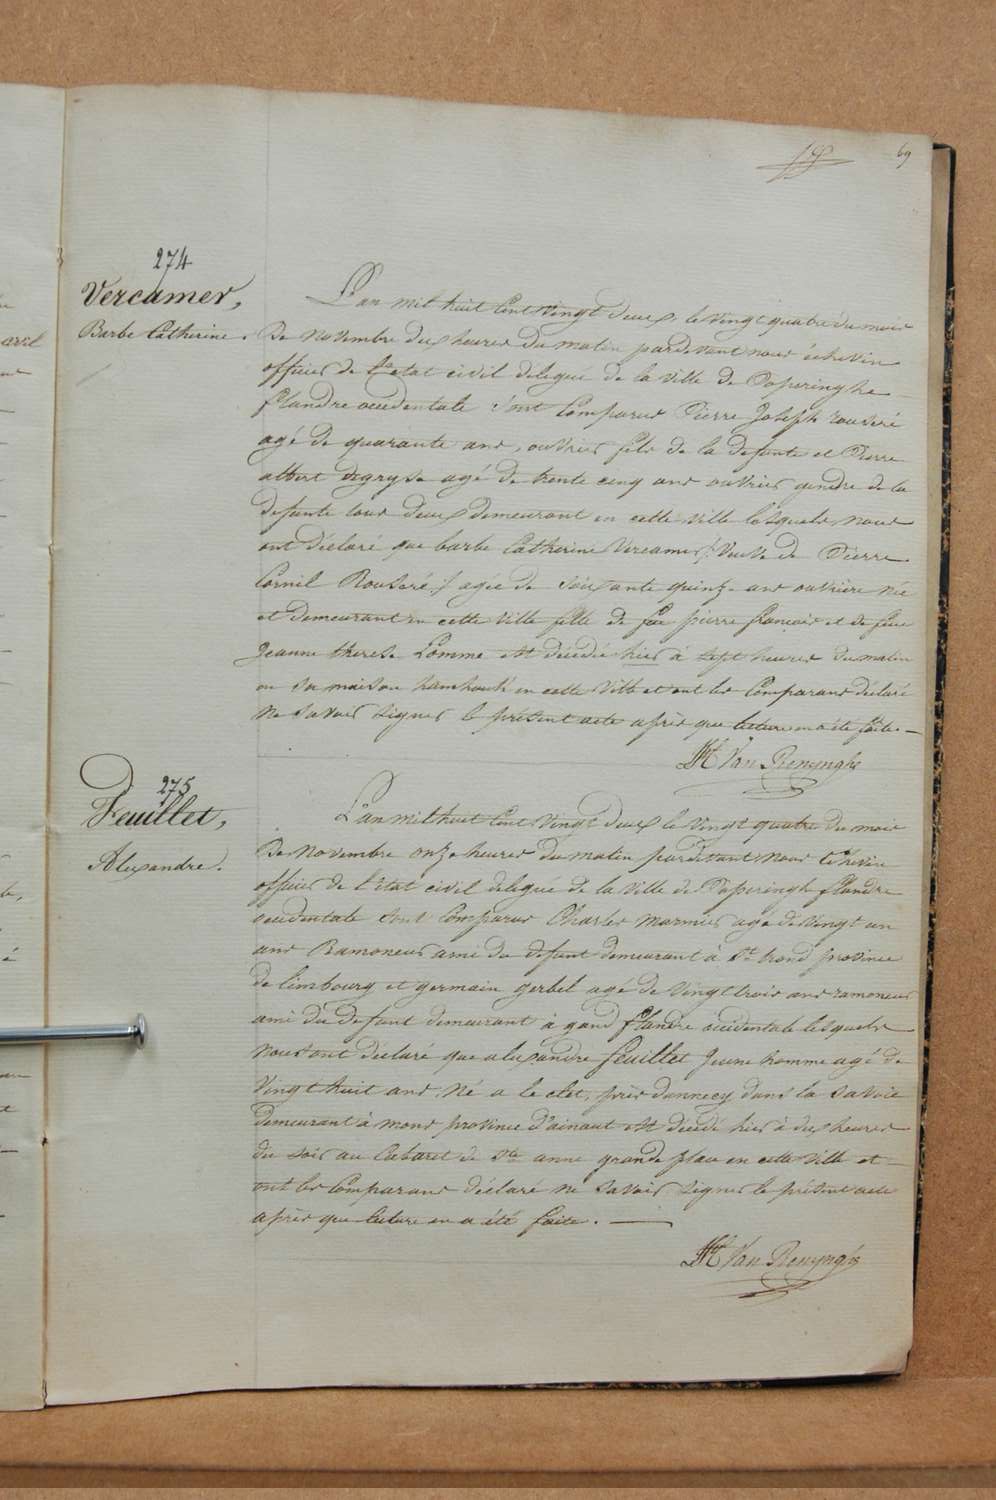 69
274
Vercamer,
Barbe Catherine.
L'an mil huit cent vingt deux, le vingt quatre du mois
de novembre dix heures du matin pardevant nous échevin
officier de l'etat civil delegué de la ville de Poperinghe
flandre occidentale sont comparus Pierre Joseph rouseré
agé de quarante ans, ouvrier fils de la defunte et Pierre
albert degryse agé de trente cinq ans ouvrier gendre de la
defunte tous deux demeurant en cette ville lesquels nous
ont déclaré que barbe Catherine Vercamer (: veuve de Pierre
Cornil Rouseré :) agee de soixante quinze ans ouvrière née
et demeurant en cette ville fille de feu pierre françois et de feue
Jeanne therese Lomme est décédée hier à sept heures du matin
en sa maison hamhoek en cette ville et ont les comparans déclaré
ne savoir signer le présent acte après que lecture en a été faite.
Van Renynghe
275
Feuillet,
Alexandre.
L'an mil huit cent vingt deux le vingt quatre du mois
de novembre onze heures du matin pardevant nous echevin
officier de l'etat civil delegué de la ville de Poperinghe flandre
occidentale sont comparus Charles marmier agé de vingt un
ans Ramoneur ami du defunt demeurant à St trond province
de limbourg et germain gerbel agé de vingt trois ans ramoneur
ami du defunt demeurant à gand flandre occidentale lesquels
nous ont déclaré que alexandre feuillet jeune homme agé de
vingt huit ans né a le clet, près dannecy dans la savoie
demeurant à mons province d'ainaut est décédé hier à dix heures
du soir au Cabaret de Ste anne grande place en cette ville et
ont les comparans déclaré ne savoir signer le présent acte
après que lecture en a été faite.
Van Renynghe